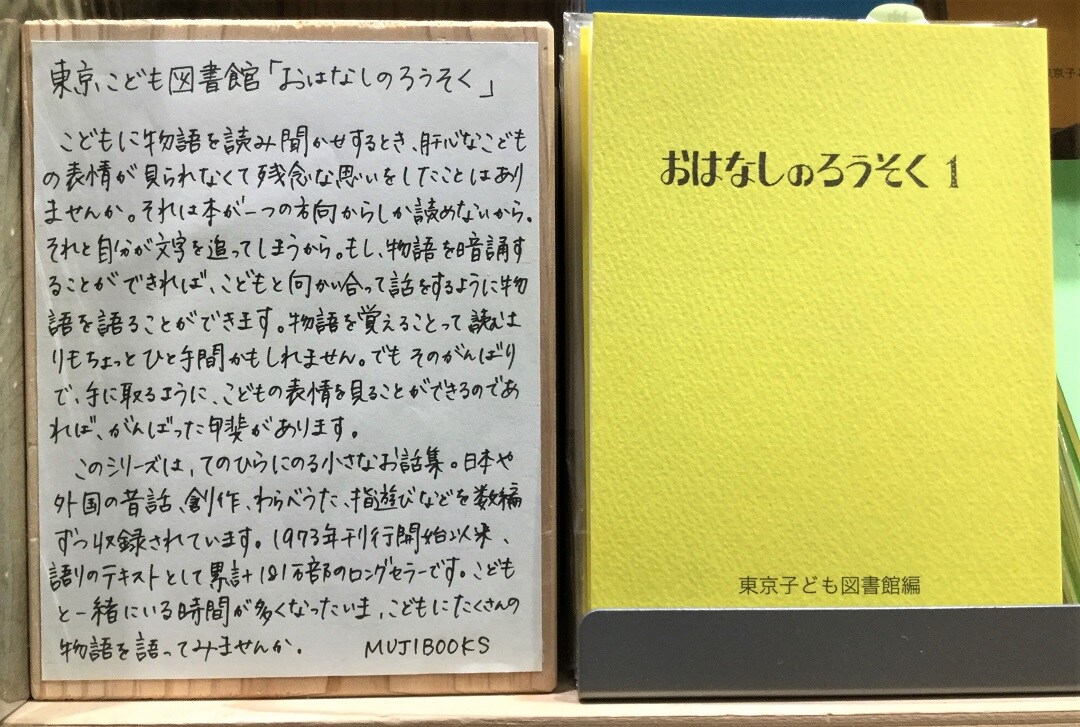 東京こども図書館「おはなしのろうそく」
こどもに物語を読み聞かせするとき、肝心なこども
の表情が見られなくて残念な思いをしたことはあり
ませんか。それは本が一つの方向からしか読めないから。
それと自分が文字を追ってしまうから。もし、物語を暗誦す
ることができれば、こどもと向かい合って話をするように物
語を語ることができます。物語を覚えることって読むよ
りもちょっとひと手間かもしれません。でもそのがんばり
で、手に取るように、こどもの表情を見ることができるのであ
れば、がんばった甲斐があります。
このシリーズは、てのひらにのる小さなお話集。日本や
外国の昔話、創作、わらべうた、指遊びなどを数編
ずつ収録されています。1973年刊行開始以来、
語りのテキストとして累計181万部のロングセラーです。こども
と一緒にいる時間が多くなったいま、こどもにたくさんの
物語を語ってみませんか。 MUJIBOOKS
おはなしのろうそく 1
東京子ども図書館編
東京子ど